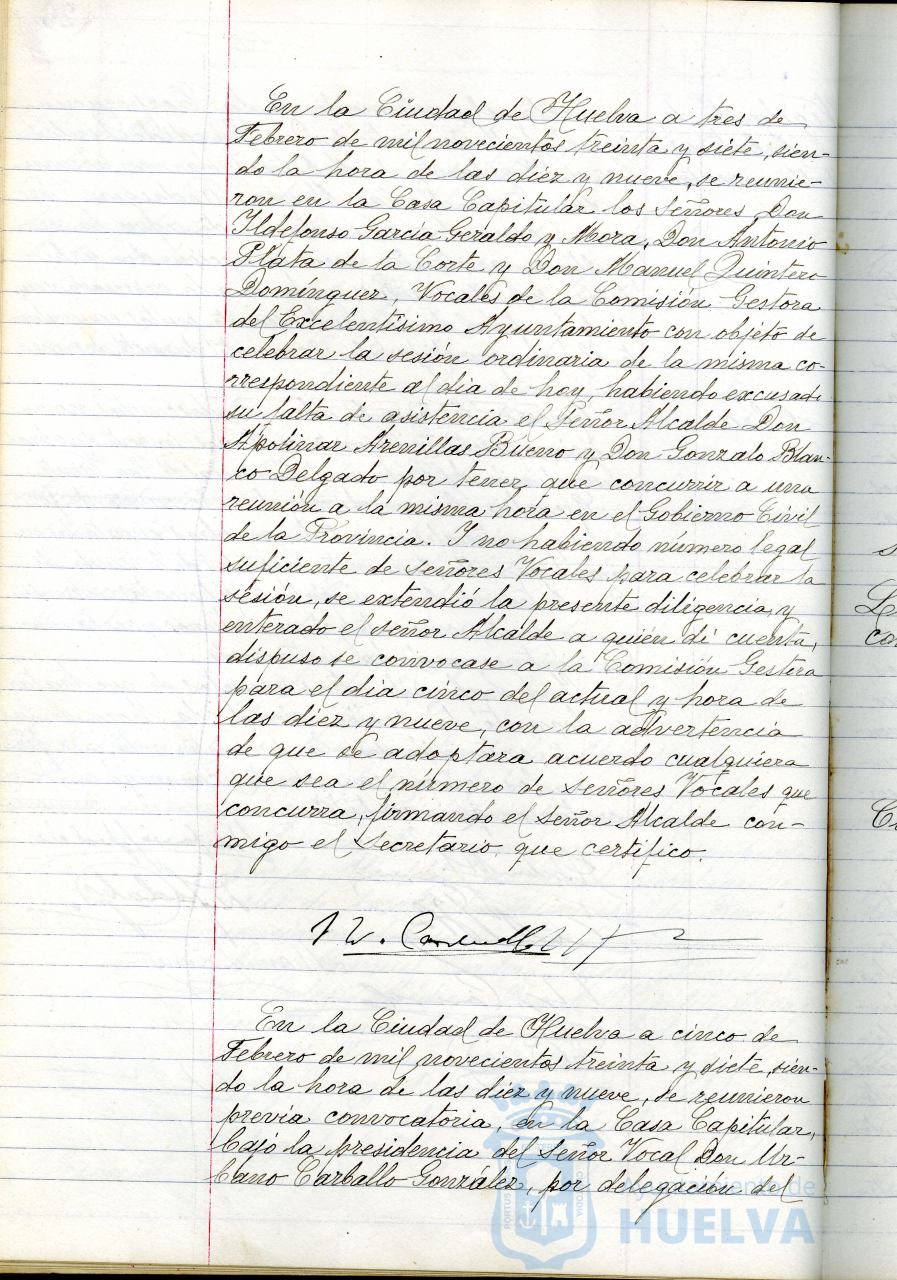 En la Ciudad de Huelva a tres de
Febrero de mil novecientos treinta y siete, sien-
do la hora de las diéz y nueve, se reunie-
ron en la Casa Capitular los señores Don
Ildefonso García-Geraldo y Mora, Don Antonio
Plata de la Corte y Don Manuel Quintero
Domínguez, Vocales de la Comisión Gestora
del Excelentísimo Ayuntamiento con objeto de
celebrar la sesión ordinaria de la misma co-
rrespondiente al dia de hoy, habiendo excusado
su falta de asistencia el Señor Alcalde Don
Apolinar Arenillas Bueno y Don Gonzalo Blan-
co Delgado por tener que concurrir a una
reunión a la misma hora en el Gobierno Civil
de la Provincia. Y no habiendo número legal
suficiente de señores Vocales para celebrar la
sesión, se extendió la presente diligencia, y
enterado el señor Alcalde a quién di cuenta,
dispuso se convocase a la Comisión Gestora
para el dia cinco del actual y hora de
las diez y nueve, con la advertencia
de que se adoptara acuerdo cualquiera
que sea el número de señores Vocales que
concurra, firmando el señor Alcalde con-
migo el Secretario, que certifico.
En la Ciudad de Huelva a cinco de
Febrero de mil novecientos treinta y siete, sien-
do la hora de las diez y nueve, se reunieron
previa convocatoria, en la Casa Capitular,
bajo la presidencia del señor Vocal Don Ur-
bano Carballo González, por delegación del
Ayuntamiento de
HUELVA